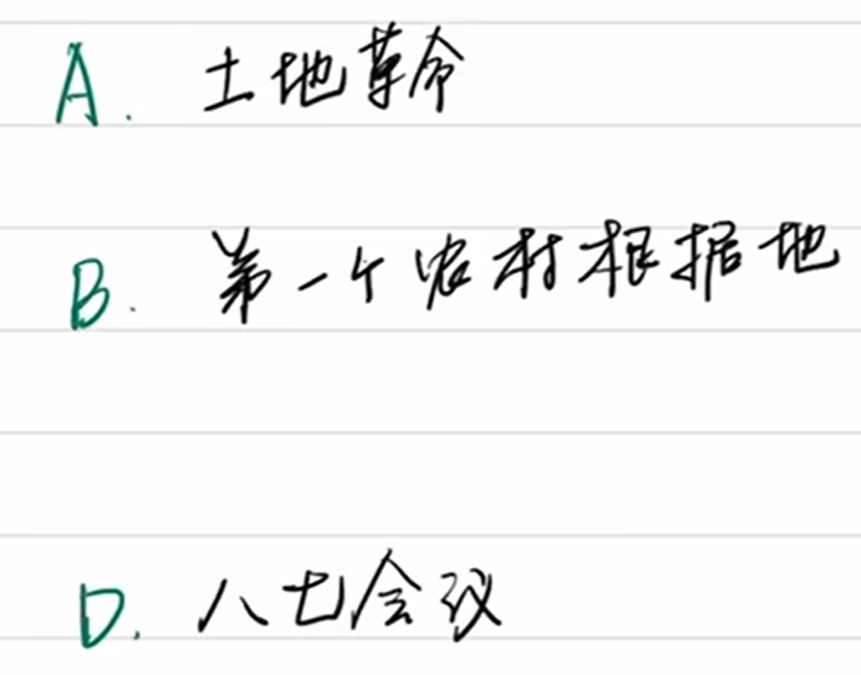 A. 土地革命
B. 第一个农村根据地
D. 八七会议